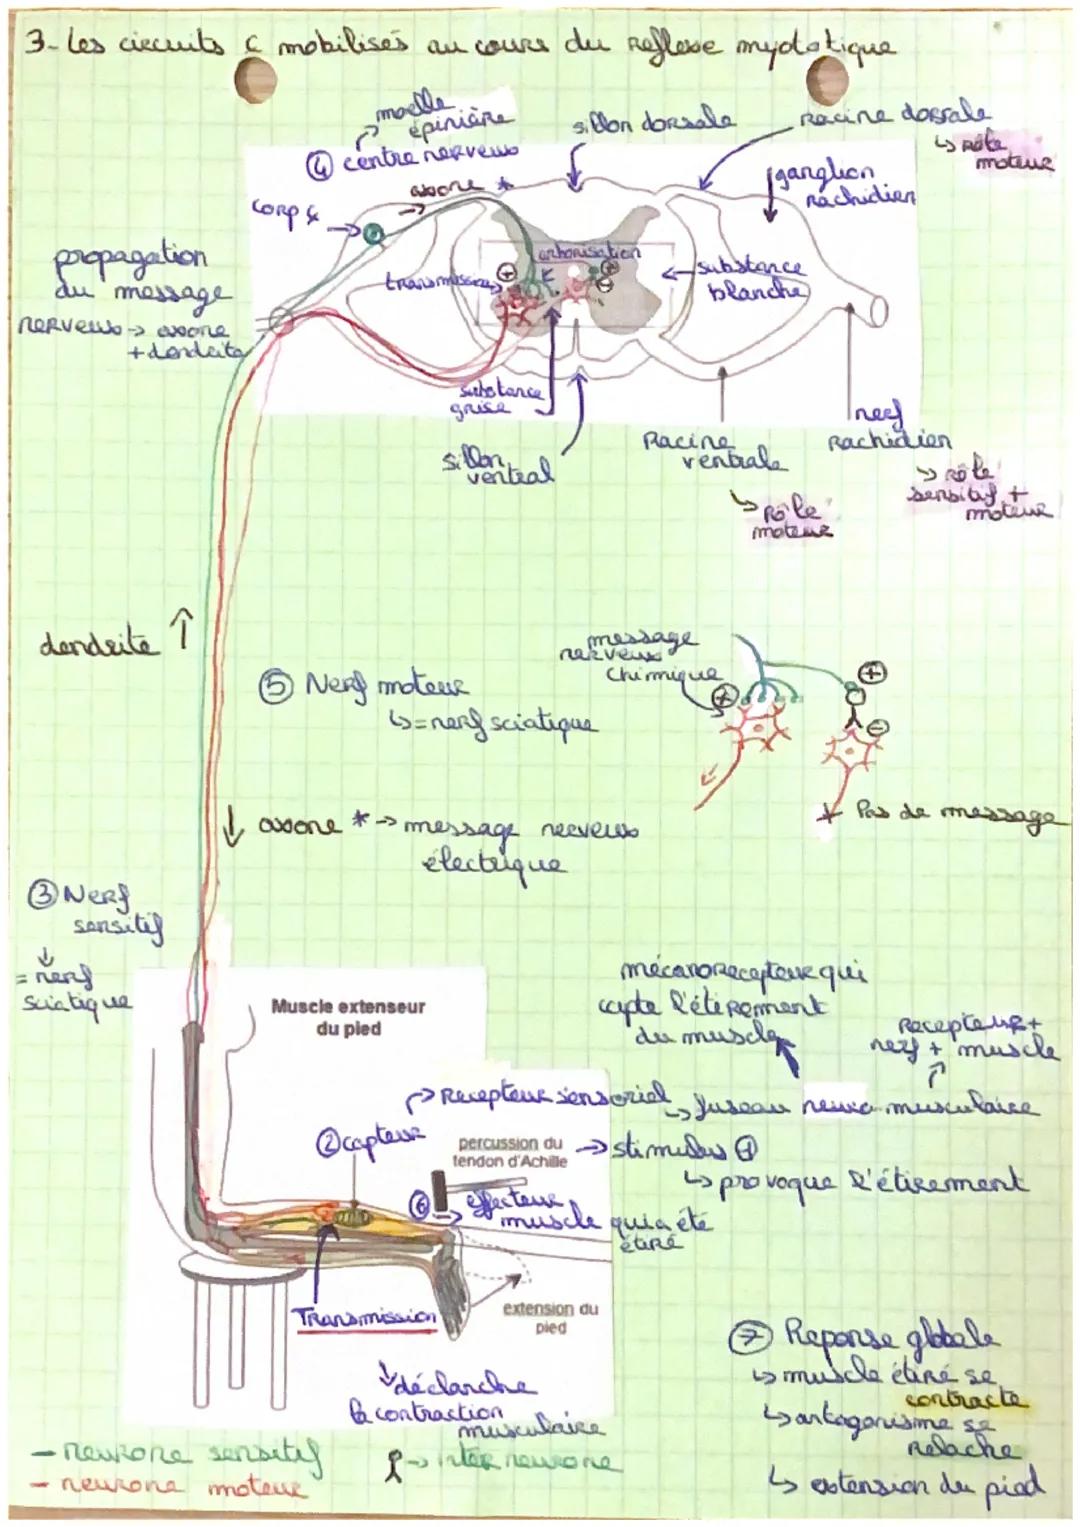 3- Les circuits ¢ mobilisés au cours du Reflexe myotatique
moelle
épinière
④ centre nerveux
sillon dorsale
Racine dorsale
↳ Rôle
moteur
axone *
ganglion
rachidien
corp ¢
propagation
du message
nerveux → axone
+ dendrite
arborisation
transmission
substance
blanche
substance
grise
sillon
ventral
Racine
ventrale
↳ Rôle
moteur
nerf
Rachidien
↳ rôle
sensitif +
moteur
dendrite ↑
message
nerveux
chimique
⑤ Nerf moteur
↳ = nerf sciatique
↓ axone * → message nerveux
électrique
Pas de message
③ Nerf
sensitif
↓
= nerf
sciatique
Muscle extenseur
du pied
mécanorecepteur qui
capte l'étirement
du muscle
Recepteur +
nerf + muscle
Recepteur sensoriel
↳ fuseau neuro-musculaire
② capteur
percussion du
tendon d'Achille
→ stimulus ⊕
↳ provoque l'étirement
⑥ effecteur
muscle qui a été
étiré
Transmission
extension du
pied
↓ déclanche
la contraction
musculaire
⑦ Reponse globale
↳ muscle étiré se
contracte
↳ antagonisme se
relache
↳ extension du pied
— neurone sensitif
→ inter neurone
— neurone moteur